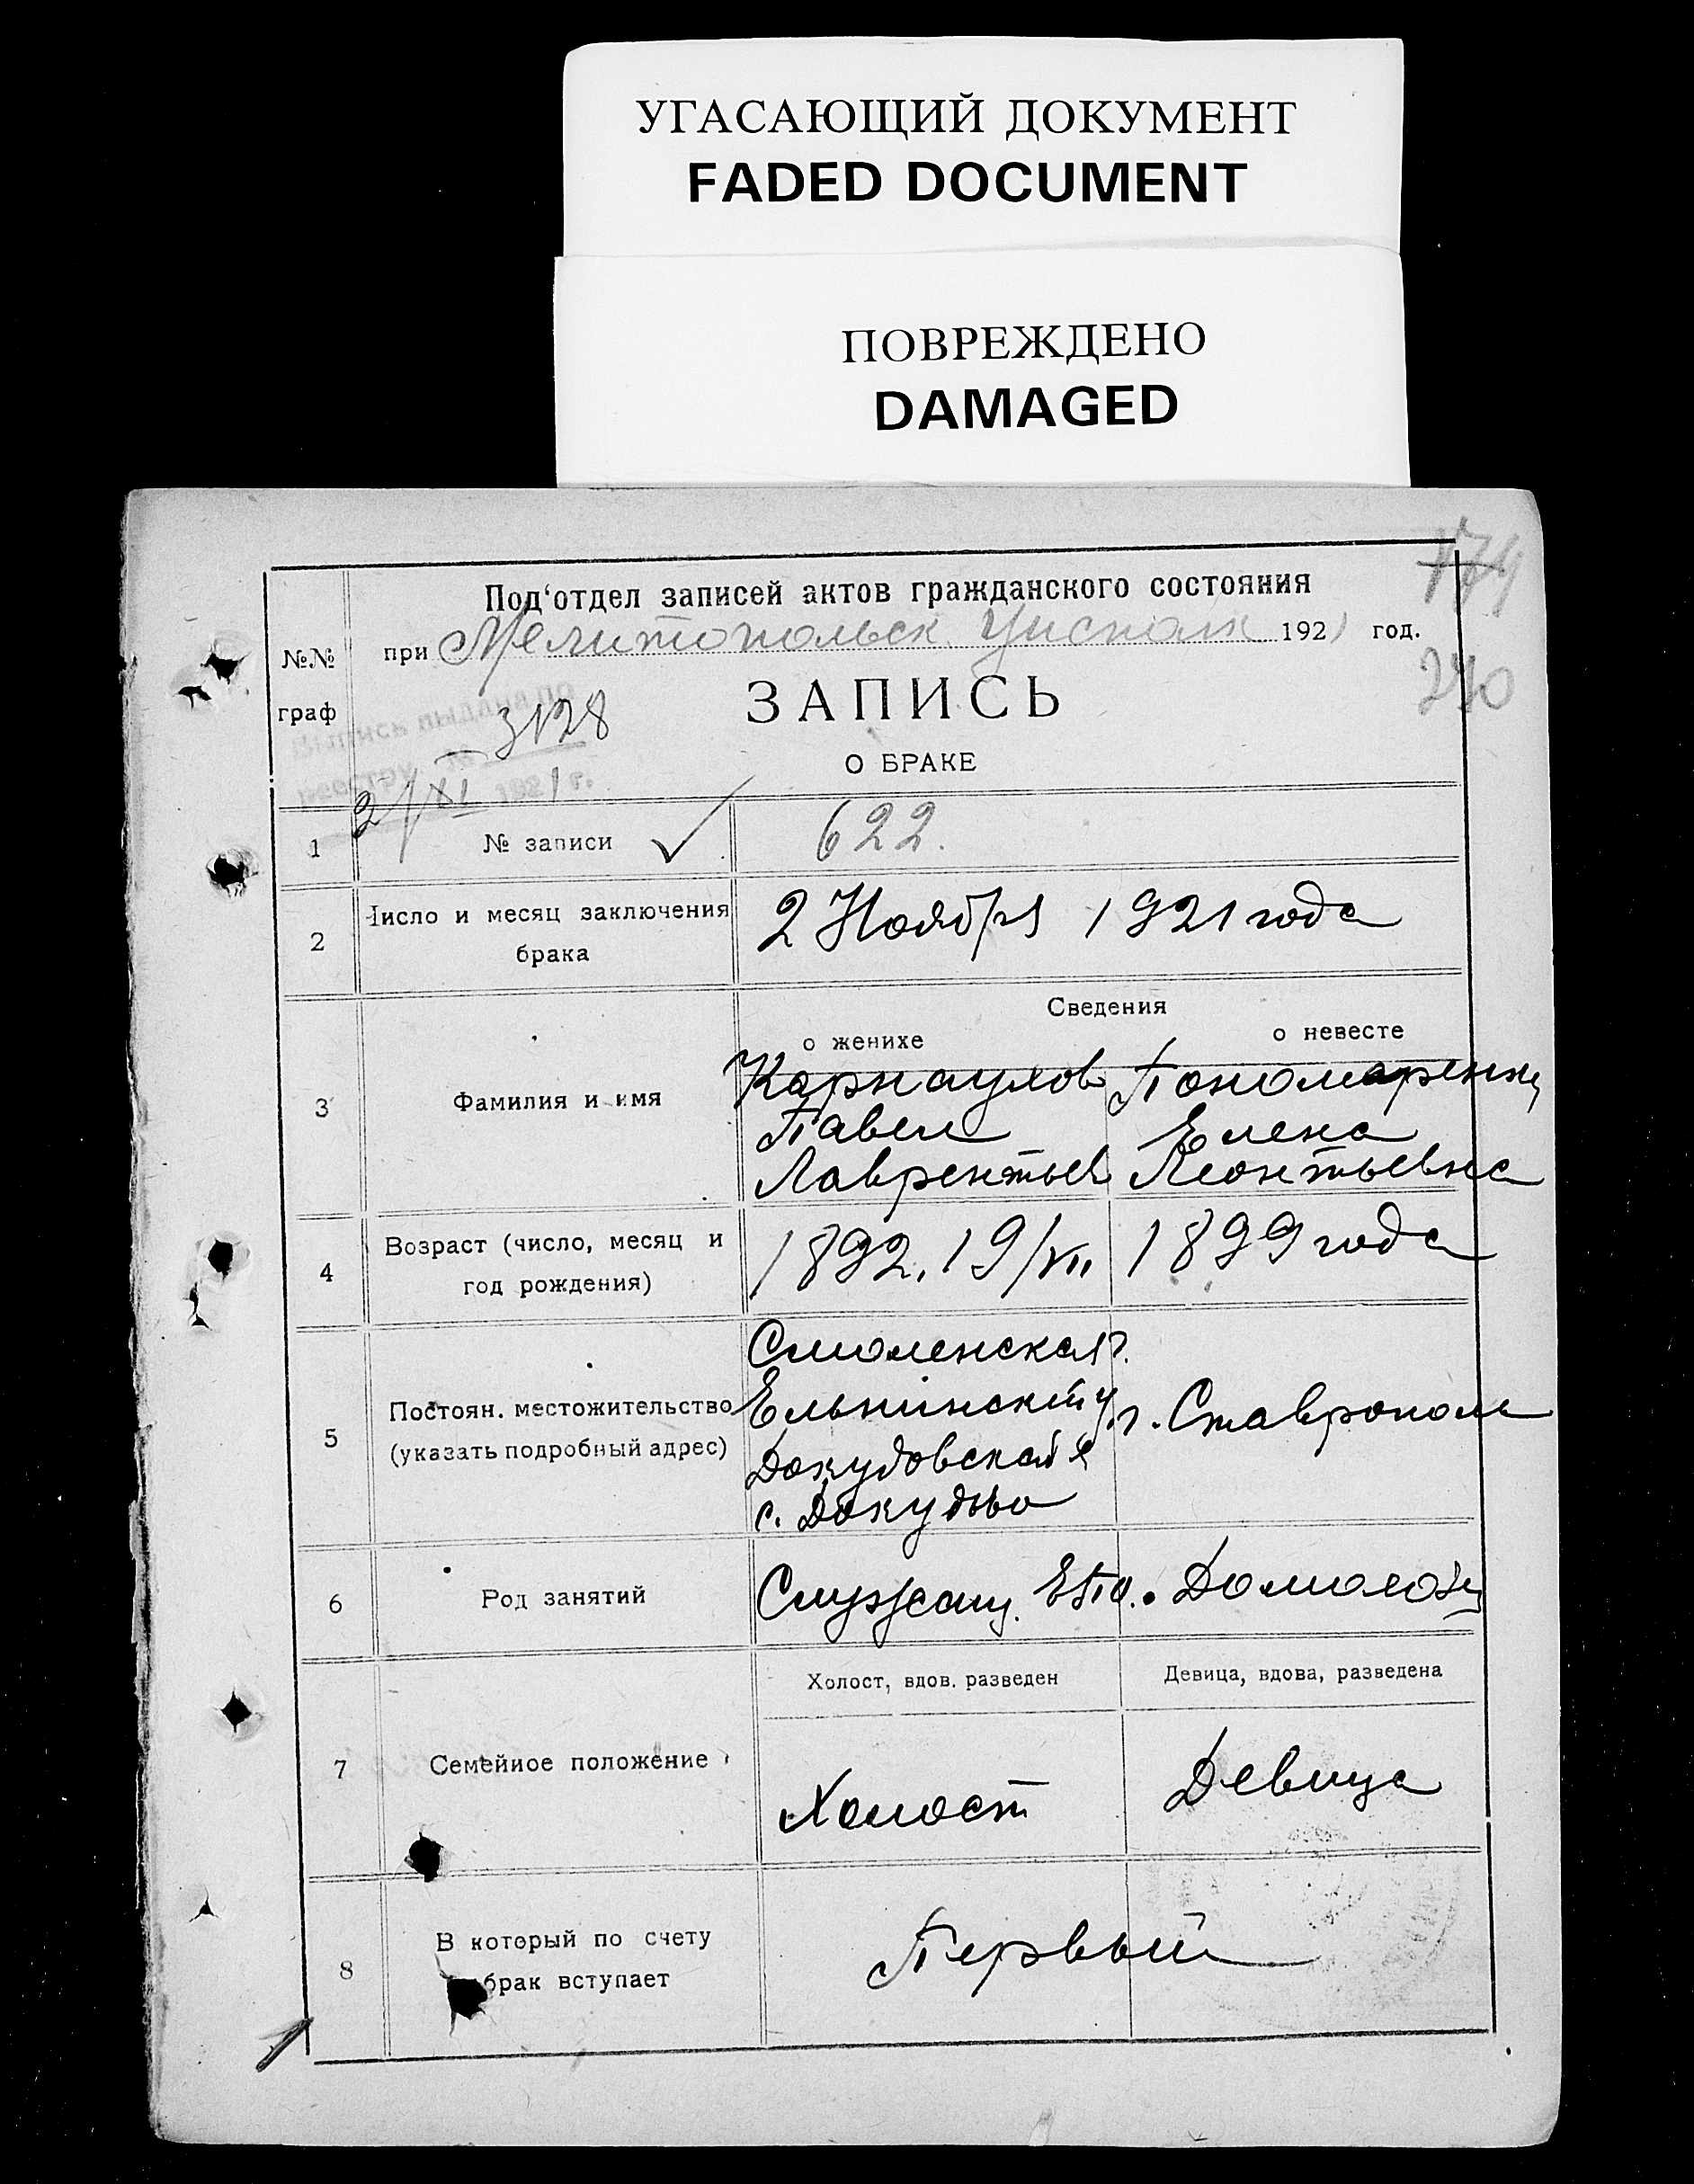 УГАСАЮЩИЙ ДОКУМЕНТ
FADED DOCUMENT
ПОВРЕЖДЕНО
DAMAGED
174
240
Под‘отдел записей актов гражданского состояния
при Мелитопольск Уисполк 1921 год.
№№
граф
ЗАПИСЬ
О БРАКЕ
Выпись выдана по
реестру № 3128
2/XI 1921 г.
1 № записи 622.
2 Число и месяц заключения
брака
2 Ноября 1921 года
Сведения
о женихе о невесте
3 Фамилия и имя
Карнаухов Пономаренко
Павел Елена
Лаврентьев Леонтьевна
4 Возраст (число, месяц и
год рождения)
1892. 19/VII 1899 года
5 Постоян. местожительство
(указать подробный адрес)
Смоленская г.
Ельнинский у. г. Ставрополь
Докудовская в
с. Докудово
6 Род занятий Служащ. Домохоз
7 Семейное положение
Холост, вдов. разведен Девица, вдова, разведена
Холост Девица
8 В который по счету
брак вступает
Первый